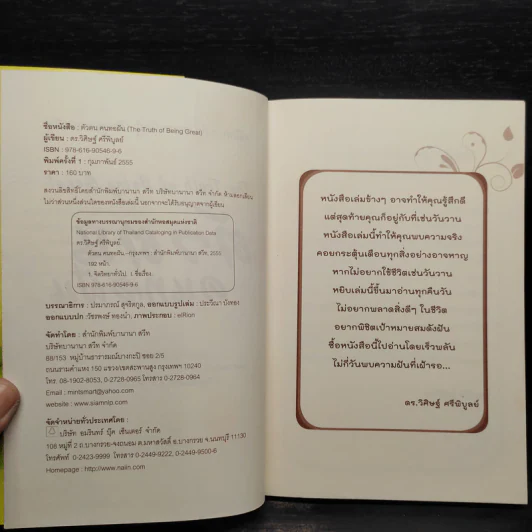 ชื่อหนังสือ : ตัวตน คนทอฝัน (The Truth of Being Great)
ผู้เขียน : ดร.วิศิษฐ์ ศรีพิบูลย์
ISBN : 978-616-90546-9-6
พิมพ์ครั้งที่ 1 : กุมภาพันธ์ 2555
ราคา : 160 บาท
สงวนลิขสิทธิ์โดยสำนักพิมพ์บานานา สวีท บริษัทบานานา สวีท จำกัด ห้ามลอกเลียน
ไม่ว่าส่วนหนึ่งส่วนใดของหนังสือเล่มนี้ นอกจากจะได้รับอนุญาตจากผู้เขียน
ข้อมูลทางบรรณานุกรมของสำนักหอสมุดแห่งชาติ
National Library of Thailand Cataloging in Publication Data
ดร.วิศิษฐ์ ศรีพิบูลย์
ตัวตน คนทอฝัน.--กรุงเทพฯ : สำนักพิมพ์บานานา สวีท, 2555
192 หน้า
1. จิตวิทยาทั่วไป. I. ชื่อเรื่อง.
ISBN 978-616-90546-9-6
บรรณาธิการ : ปรมาภรณ์ สุจริตกุล, ออกแบบรูปเล่ม : ประวีณา บังทอง
ออกแบบปก : วัชรพงษ์ ทองนำ, ภาพประกอบ :
จัดทำโดย : สำนักพิมพ์บานานา สวีท
บริษัทบานานา สวีท จำกัด
88/153 หมู่บ้านธารารมณ์บางกะปิ ซอย 2/5
ถนนรามคำแหง 150 แขวง/เขตสะพานสูง กรุงเทพฯ 10240
โทร. 08-1902-8053, 0-2728-0965 โทรสาร 0-2728-0964
Email : mintsmart@yahoo.com
website : www.siamnlp.com
จัดจำหน่ายทั่วประเทศโดย :
บริษัท อมรินทร์ บุ๊ค เซ็นเตอร์ จำกัด
108 หมู่ที่ 2 ถ.บางกรวย-จงถนอม ต.มหาสวัสดิ์ อ.บางกรวย จ.นนทบุรี 11130
โทรศัพท์ 0-2423-9999 โทรสาร 0-2449-9222, 0-2449-9500-6
Homepage : http://www.naiin.com
หนังสือเล่มข้างๆ อาจทำให้คุณรู้สึกดี
แต่สุดท้ายคุณก็อยู่กับที่เช่นวันวาน
หนังสือเล่มนี้ทำให้คุณพบความจริง
คอยกระตุ้นเตือนทุกสิ่งอย่างอาจหาญ
หากไม่อยากใช้ชีวิตเช่นวันวาน
หยิบเล่มนี้ขึ้นมาอ่านทุกคืนวัน
ไม่อยากพลาดสิ่งดีๆ ในชีวิต
อยากพิชิตเป้าหมายสมดังฝัน
ซื้อหนังสือนี้ไปอ่านโดยเร็วพลัน
ไม่กี่วันพบความฝันที่เฝ้ารอ...
ดร.วิศิษฐ์ ศรีพิบูลย์